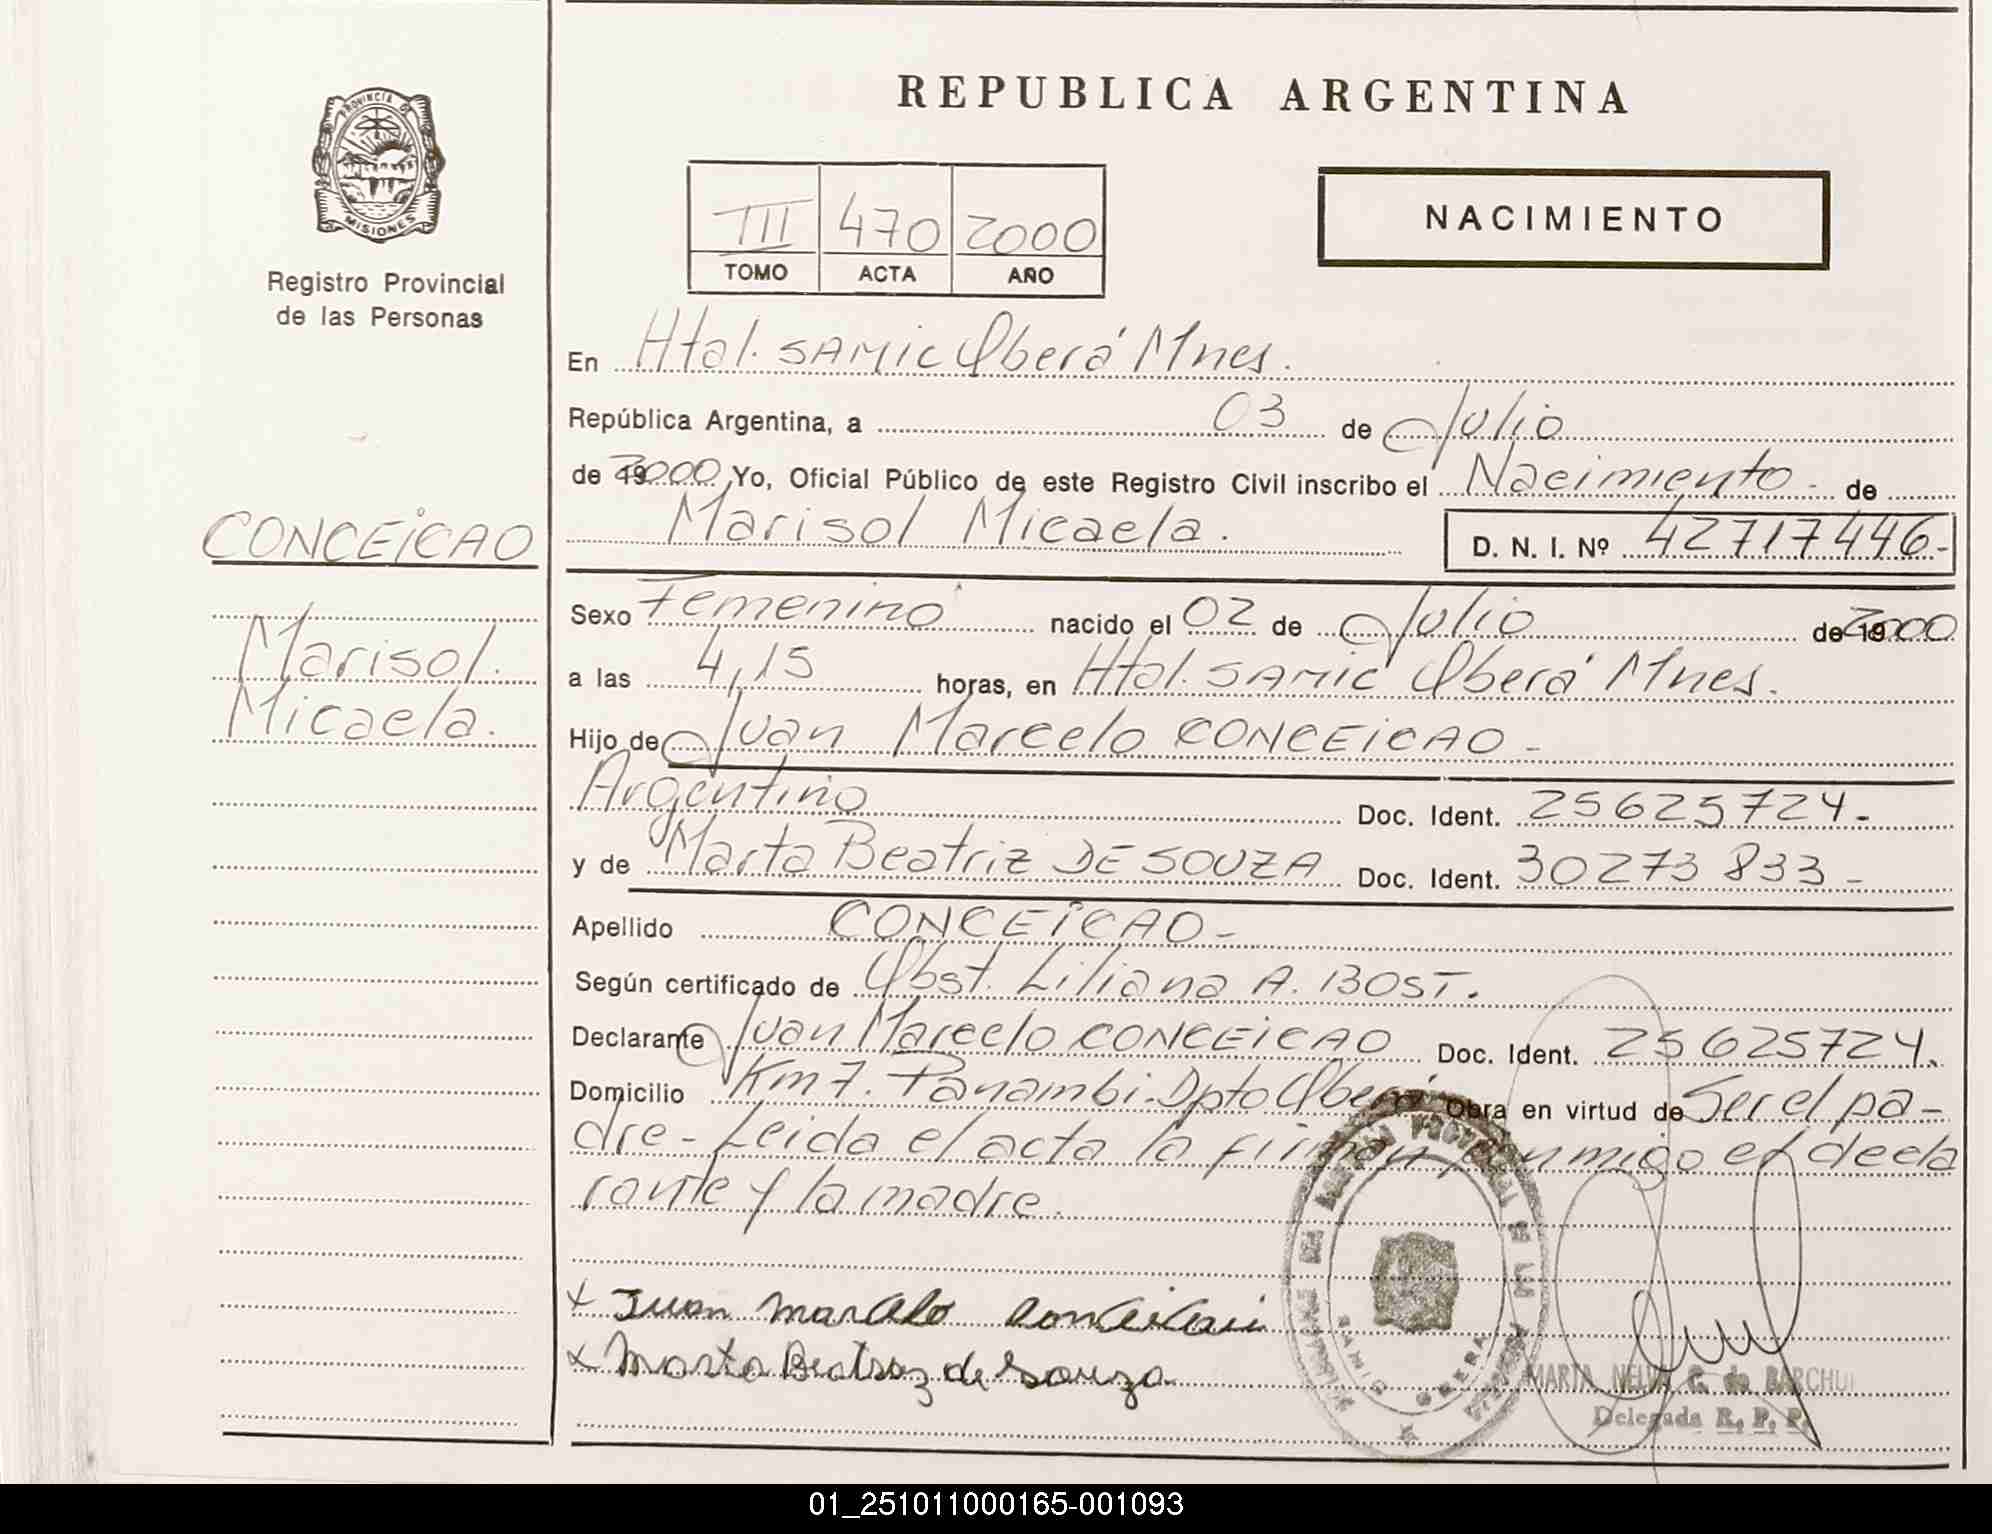 REPUBLICA ARGENTINA
PROVINCIA DE
MISIONES
Registro Provincial
de las Personas
III 470 2000
TOMO ACTA AÑO
NACIMIENTO
En Htal. SAMIC Oberá Mnes.
República Argentina, a 03 de Julio
de 19 2000 Yo, Oficial Público de este Registro Civil inscribo el Nacimiento - de
Marisol Micaela. D. N. I. Nº 42717446-
CONCEICAO
Marisol.
Micaela.
Sexo Femenino nacido el 02 de Julio de 19 2000
a las 4,15 horas, en Htal. SAMIC Oberá Mnes.
Hijo de Juan Marcelo CONCEICAO -
Argentino Doc. Ident. 25625724-
y de Marta Beatriz DE SOUZA Doc. Ident. 30273833-
Apellido CONCEICAO-
Según certificado de Obst. Liliana A. BOST.
Declarante Juan Marcelo CONCEICAO Doc. Ident. 25625724.
Domicilio Km 7. Panambi. Dpto Oberá Obra en virtud de Ser el pa-
dre - Leida el acta la firman conmigo el decla
rante y la madre.
x Juan Marcelo
x Marta Beatriz de Souza
MARTA NELVA C. de BARCHUK
Delegada R. P. P.
OBERA
01_251011000165-001093